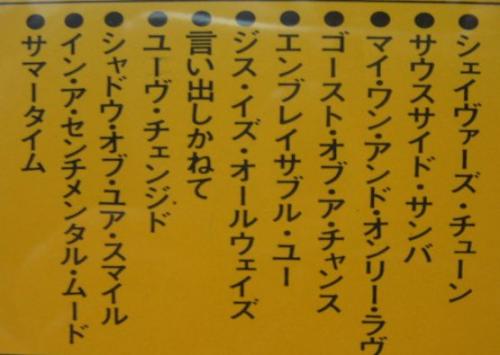 ●シェイヴァーズ・チューン
●サウスサイド・サンバ
●マイ・ワン・アンド・オンリー・ラヴ
●ゴースト・オブ・ア・チャンス
●エンブレイサブル・ユー
●ジス・イズ・オールウェイズ
●言い出しかねて
●ユーヴ・チェンジド
●シャドウ・オブ・ユア・スマイル
●イン・ア・センチメンタル・ムード
●サマータイム